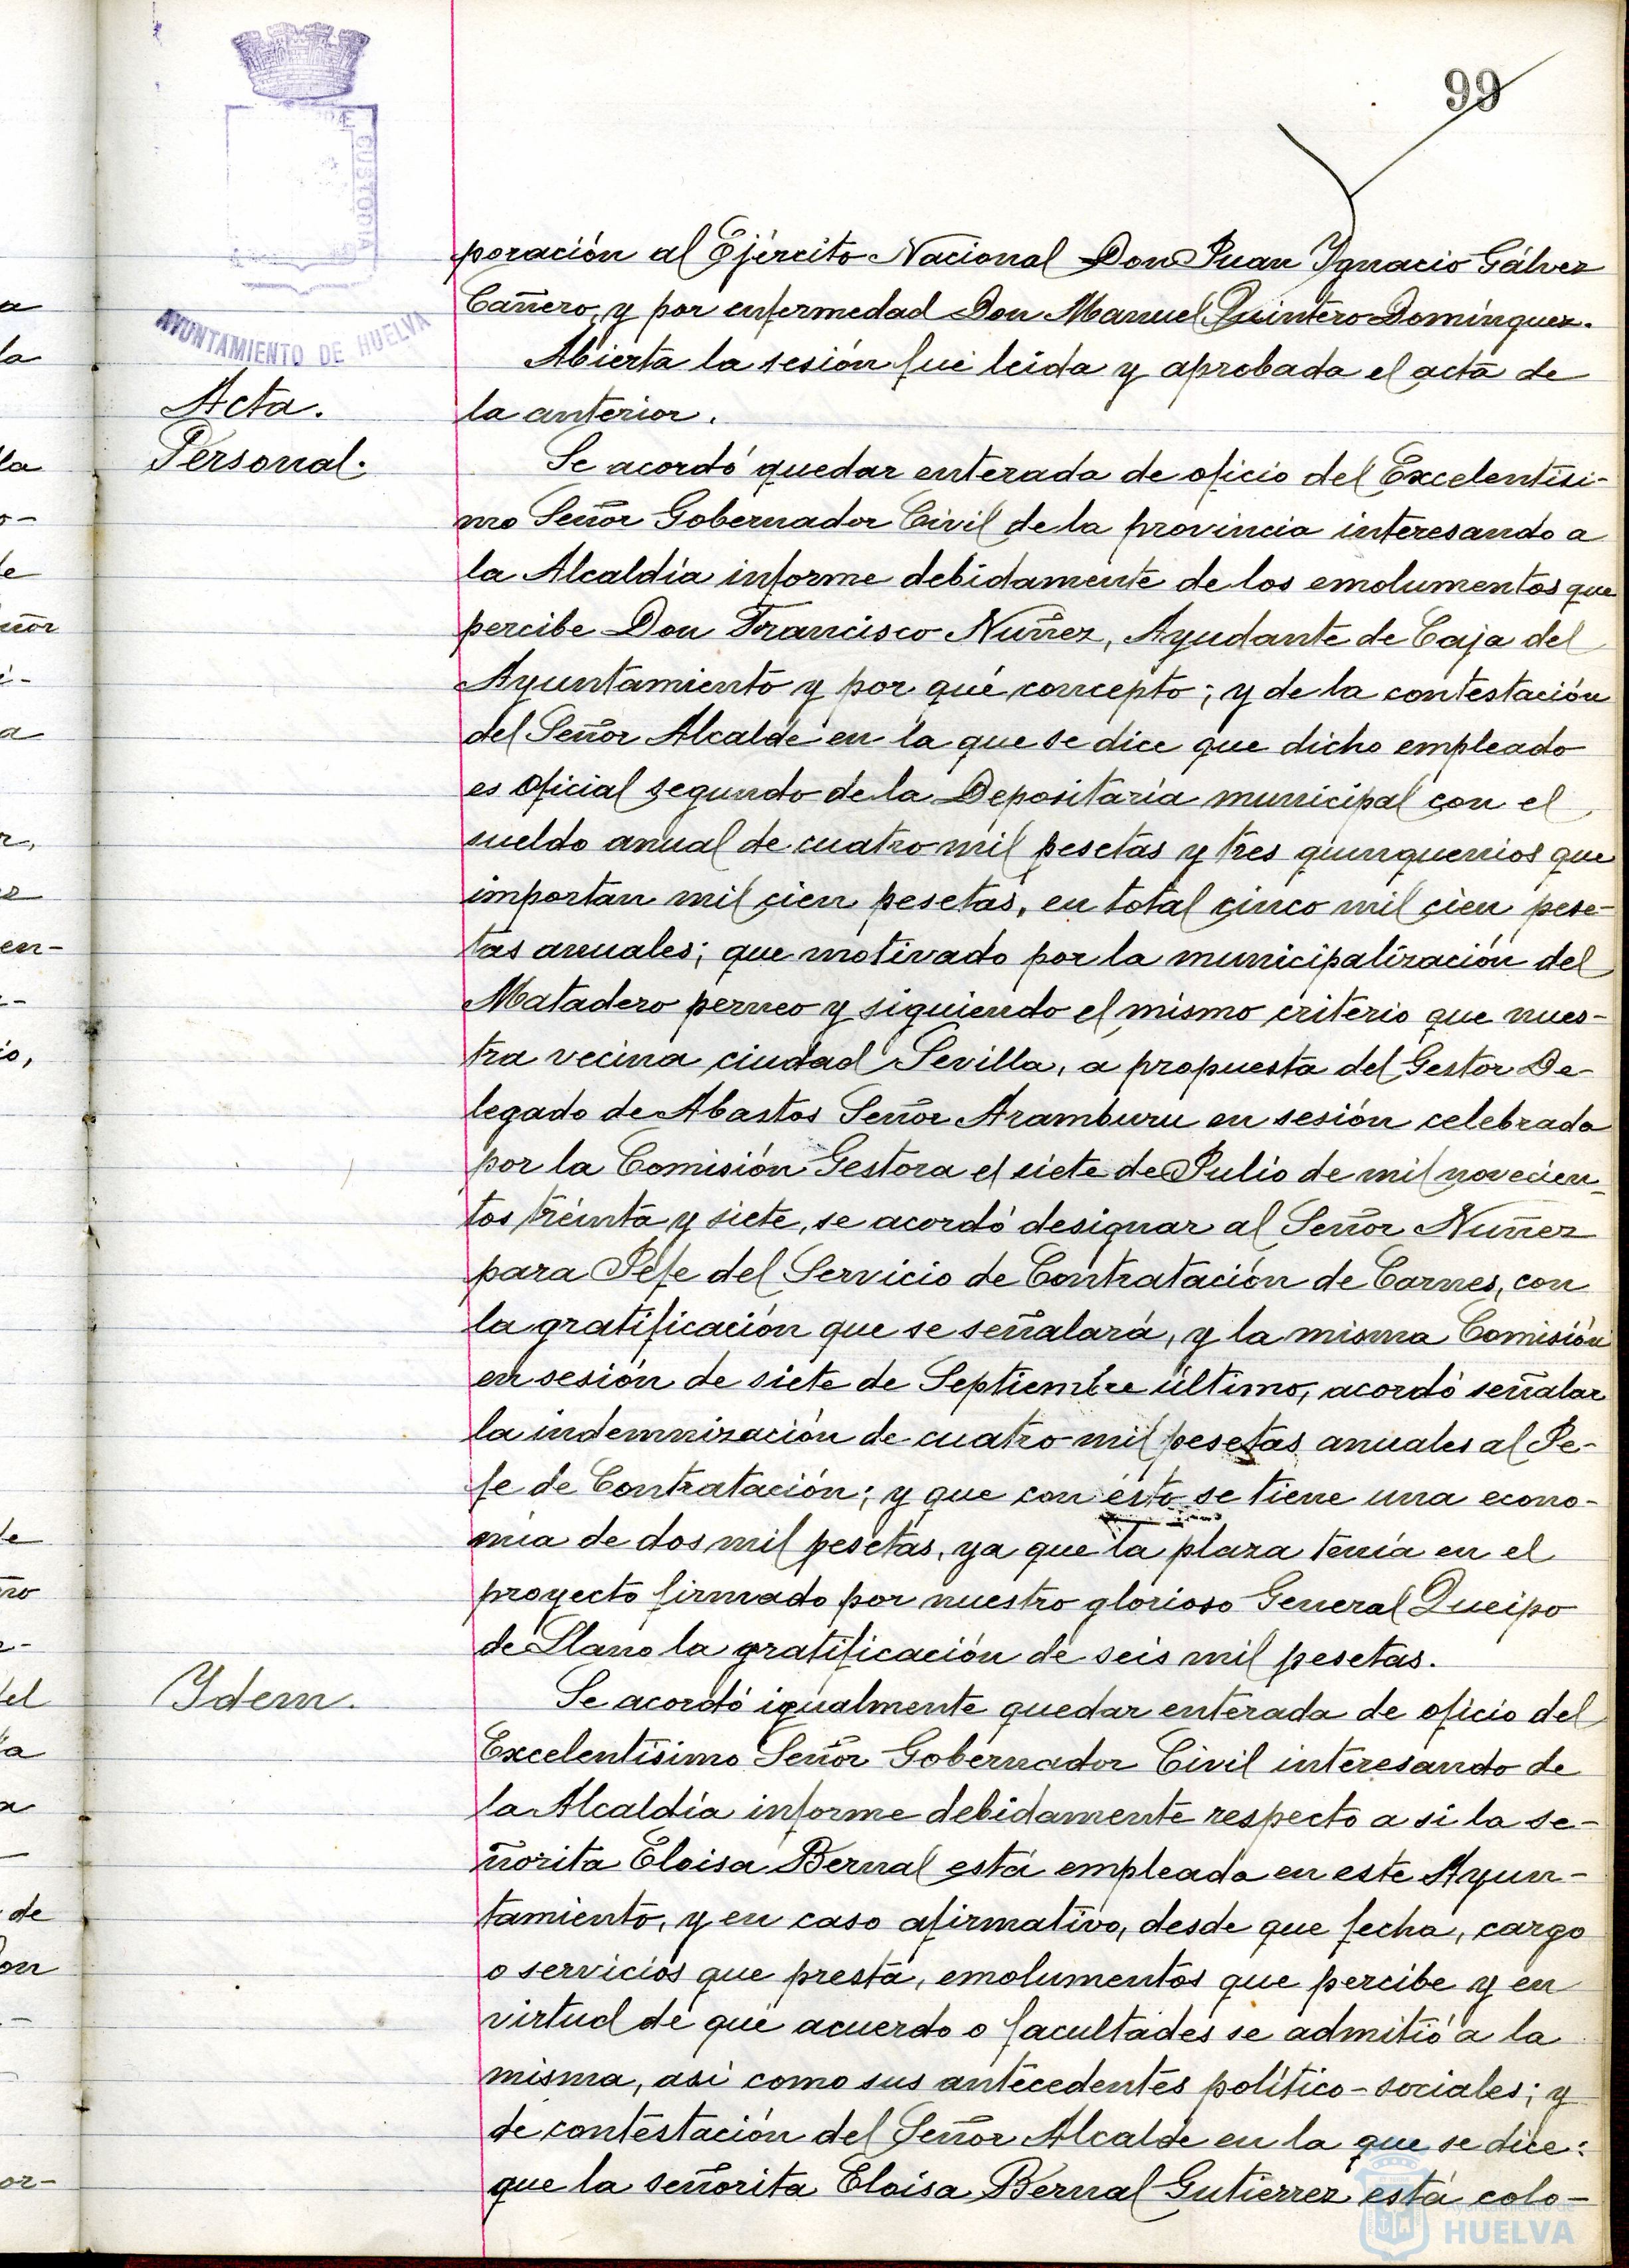 99
CUSTODIA
AYUNTAMIENTO DE HUELVA
poración al Ejército Nacional Don Juan Ygnacio Gálvez
Cañero, y por enfermedad Don Manuel Quintero Domínguez.
Abierta la sesión fué leida y aprobada el acta de
Acta.
la anterior.
Personal.
Se acordó quedar enterada de oficio del Excelentísi-
mo Señor Gobernador Civil de la provincia interesando a
la Alcaldía informe debidamente de los emolumentos que
percibe Don Francisco Nuñez, Ayudante de Caja del
Ayuntamiento y por qué concepto; y de la contestación
del Señor Alcalde en la que se dice que dicho empleado
es oficial segundo de la Depositaría municipal con el
sueldo anual de cuatro mil pesetas y tres quinquenios que
importan mil cien pesetas, en total cinco mil cien pese-
tas anuales; que motivado por la municipalización del
Matadero perneo y siguiendo el mismo criterio que nues-
tra vecina ciudad Sevilla, a propuesta del Gestor De-
legado de Abastos Señor Aramburu en sesión celebrada
por la Comisión Gestora el siete de Julio de mil novecien-
tos treinta y siete, se acordó designar al Señor Nuñez
para Jefe del Servicio de Contratación de Carnes, con
la gratificación que se señalará, y la misma Comisión
en sesión de siete de Septiembre último, acordó señalar
la indemnización de cuatro mil pesetas anuales al Je-
fe de Contratación; y que con ésto se tiene una econo-
mía de dos mil pesetas, ya que la plaza tenía en el
proyecto firmado por nuestro glorioso General Queipo
de Llano la gratificación de seis mil pesetas.
Ydem.
Se acordó igualmente quedar enterada de oficio del
Excelentísimo Señor Gobernador Civil interesando de
la Alcaldía informe debidamente respecto a si la se-
ñorita Eloisa Bernal está empleada en este Ayun-
tamiento, y en caso afirmativo, desde que fecha, cargo
o servicios que presta, emolumentos que percibe y en
virtud de qué acuerdo o facultades se admitió a la
misma, así como sus antecedentes político-sociales; y
de contestación del Señor Alcalde en la que se dice:
que la señorita Eloisa Bernal Gutierrez está colo-
HUELVA